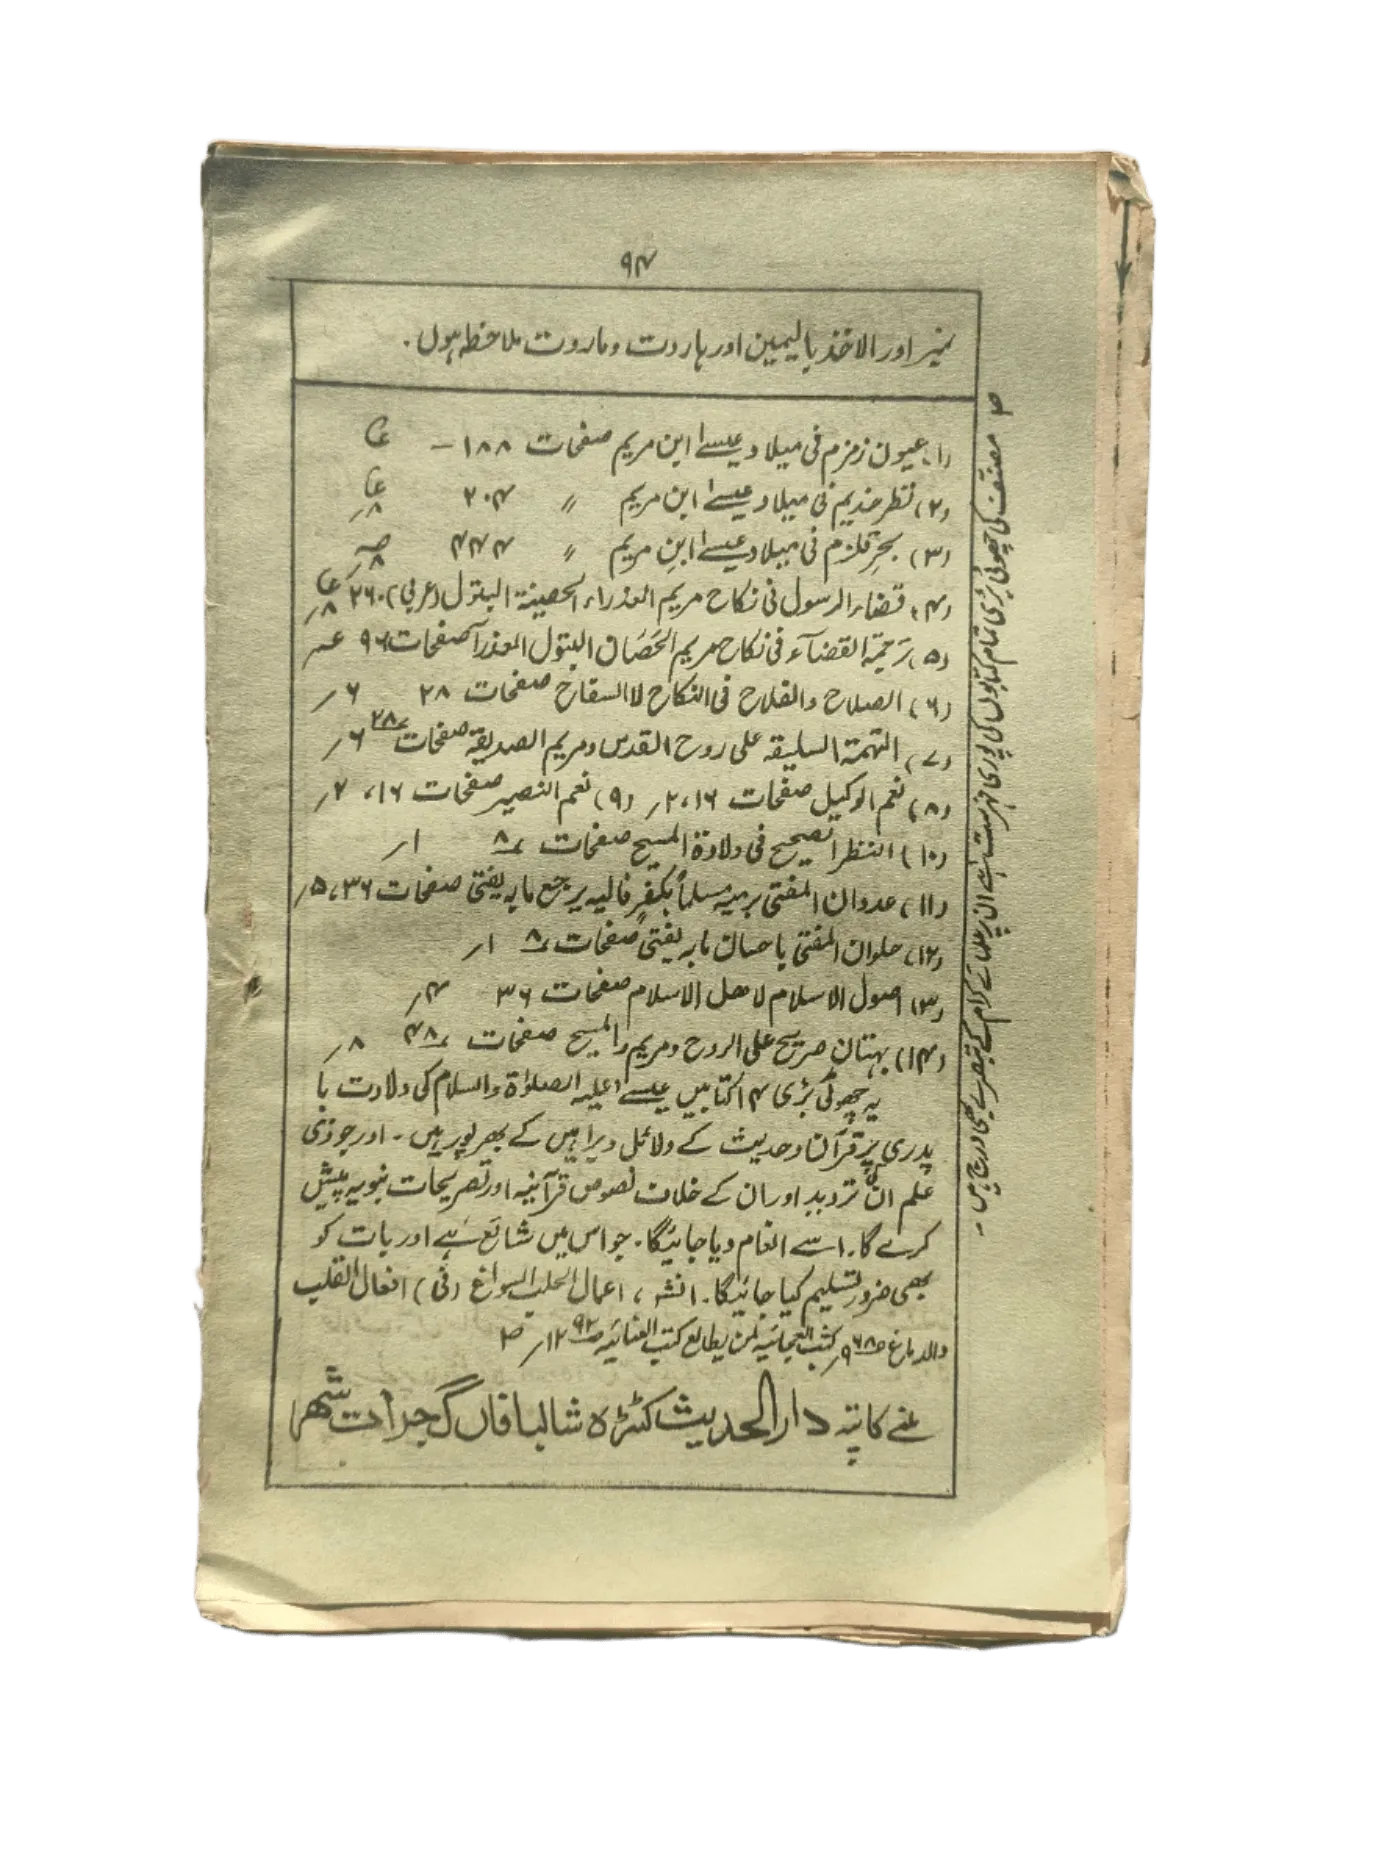 ۹۴
نمبر اور الاخذ بالیمین اور ہاروت و ماروت ملاحظہ ہوں.
(۱) عیون زمزم فی میلاد عیسےٰ ابن مریم صفحات ۱۸۸ —
(۲) نظر خذیم فی میلاد عیسےٰ ابن مریم 〃 ۲۰۴
(۳) بحرِ قلزم فی میلاد عیسےٰ ابنِ مریم 〃 ۴۴۴
(۴) قضاء الرسول فی نکاح مریم العذراء الحصینۃ البتول (عربی) ۲۶۰
(۵) رَحمۃ القضآء فی نکاح مریم الحَصَان البتول العذرآ صفحات ۹۶
(۶) الصلاح والفلاح فی النکاح لا السفاح صفحات ۲۸ ۶؍
(۷) التہمۃ السلیقہ علی روح القدس و مریم الصدیقہ صفحات ۲۸ ۶؍
(۸) نعم الوکیل صفحات ۱۶، ۲؍ (۹) نعم النصیر صفحات ۱۶، ۲؍
(۱۰) النظر الصحیح فی ولادۃ المسیح صفحات ۸ ۱؍
(۱۱) عدوان المفتی برمیہ مسلماً بکفرٍ فالیہ یرجع ما بہ یفتی صفحات ۳۶، ۵؍
(۱۲) حلوان المفتی باحسان ما بہ یفتی صفحات ۸ ۱؍
(۱۳) اصول الاسلام لاھل الاسلام صفحات ۳۶ ۴؍
(۱۴) بہتان صریح علی الروح و مریم والمسیح صفحات ۴۸ ۸؍
یہ چھوٹی بڑی ۱۴ کتابیں عیسےٰ علیہ الصلوٰۃ والسلام کی ولادت با
پدری پر قرآن و حدیث کے دلائل و براہین کے بھرپور ہیں۔ اور جو ذی
علم ان کی تردید اور ان کے خلاف نصوص قرآنیہ اور تصریحات نبویہ پیش
کرے گا۔ اسے انعام دیا جائیگا۔ جو اس میں شائع ہے اور بات کو
بھی ضرور تسلیم کیا جائیگا۔ انشہ، اعمال الحلب السواغ (فی) افعال القلب
والدماغ ۶۸ ۹؍ کتب العجائیہ لمن یطالع کتب العنائیہ ۹۲ ۱۲؍
ملنے کا پتہ دار الحدیث کٹڑہ شالبافاں گجرات شھر
مصنف کی چھوٹی بڑی تمام کتابوں کی پوری فہرست ان پر علمائے کرام کے تبصرے بھی درج ہیں۔